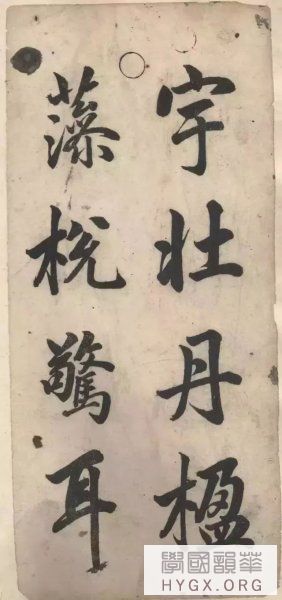 宇壯丹楹
藻梲驚耳
華韻國學
HYGX.ORG